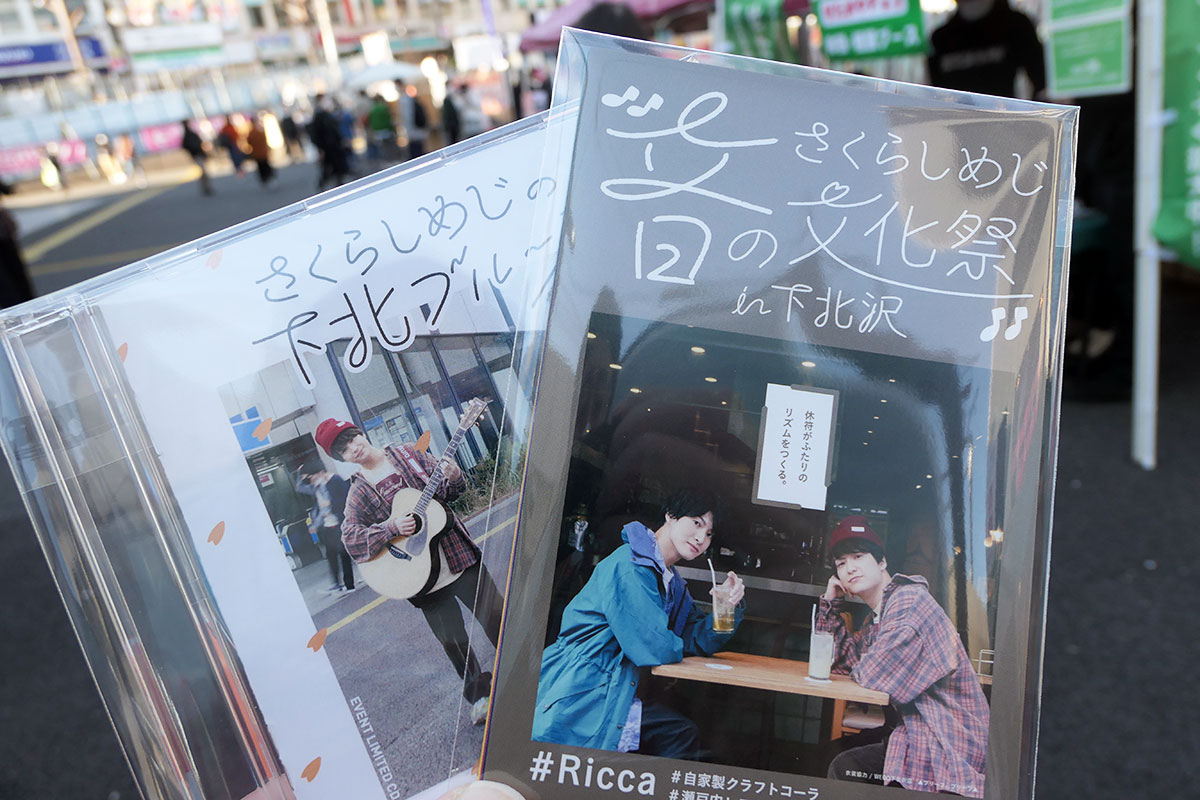 さくらしめじの
下北ブルー
EVENT LIMITED CD
さくらしめじ
音の文化祭
in下北沢
休符がふたりの
リズムをつくる。
#Ricca
#自家製クラフトコーラ